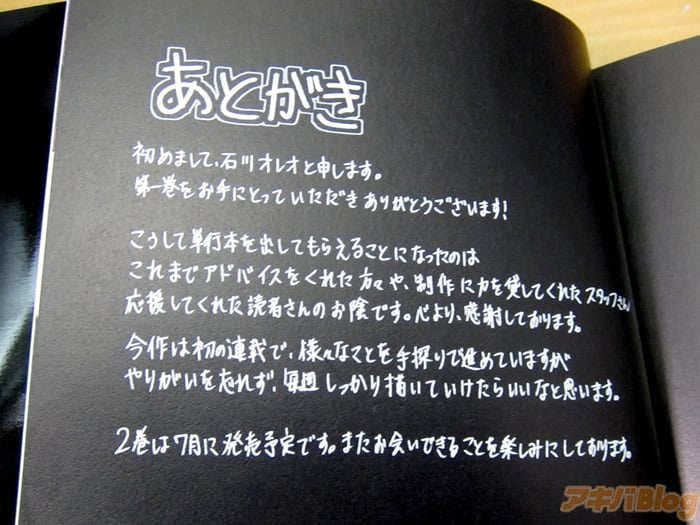 あとがき
初めまして、石川オレオと申します。
第一巻をお手にとっていただきありがとうございます!
こうして単行本を出してもらえることになったのは
これまでアドバイスをくれた方々や、制作に力を貸してくれたスタッフさん
応援してくれた読者さんのお陰です。心より、感謝しております。
今作は初の連載で、様々なことを手探りで進めていますが
やりがいを忘れず、毎週しっかり描いていけたらいいなと思います。
2巻は7月に発売予定です。またお会いできることを楽しみにしております。
アキバBlog